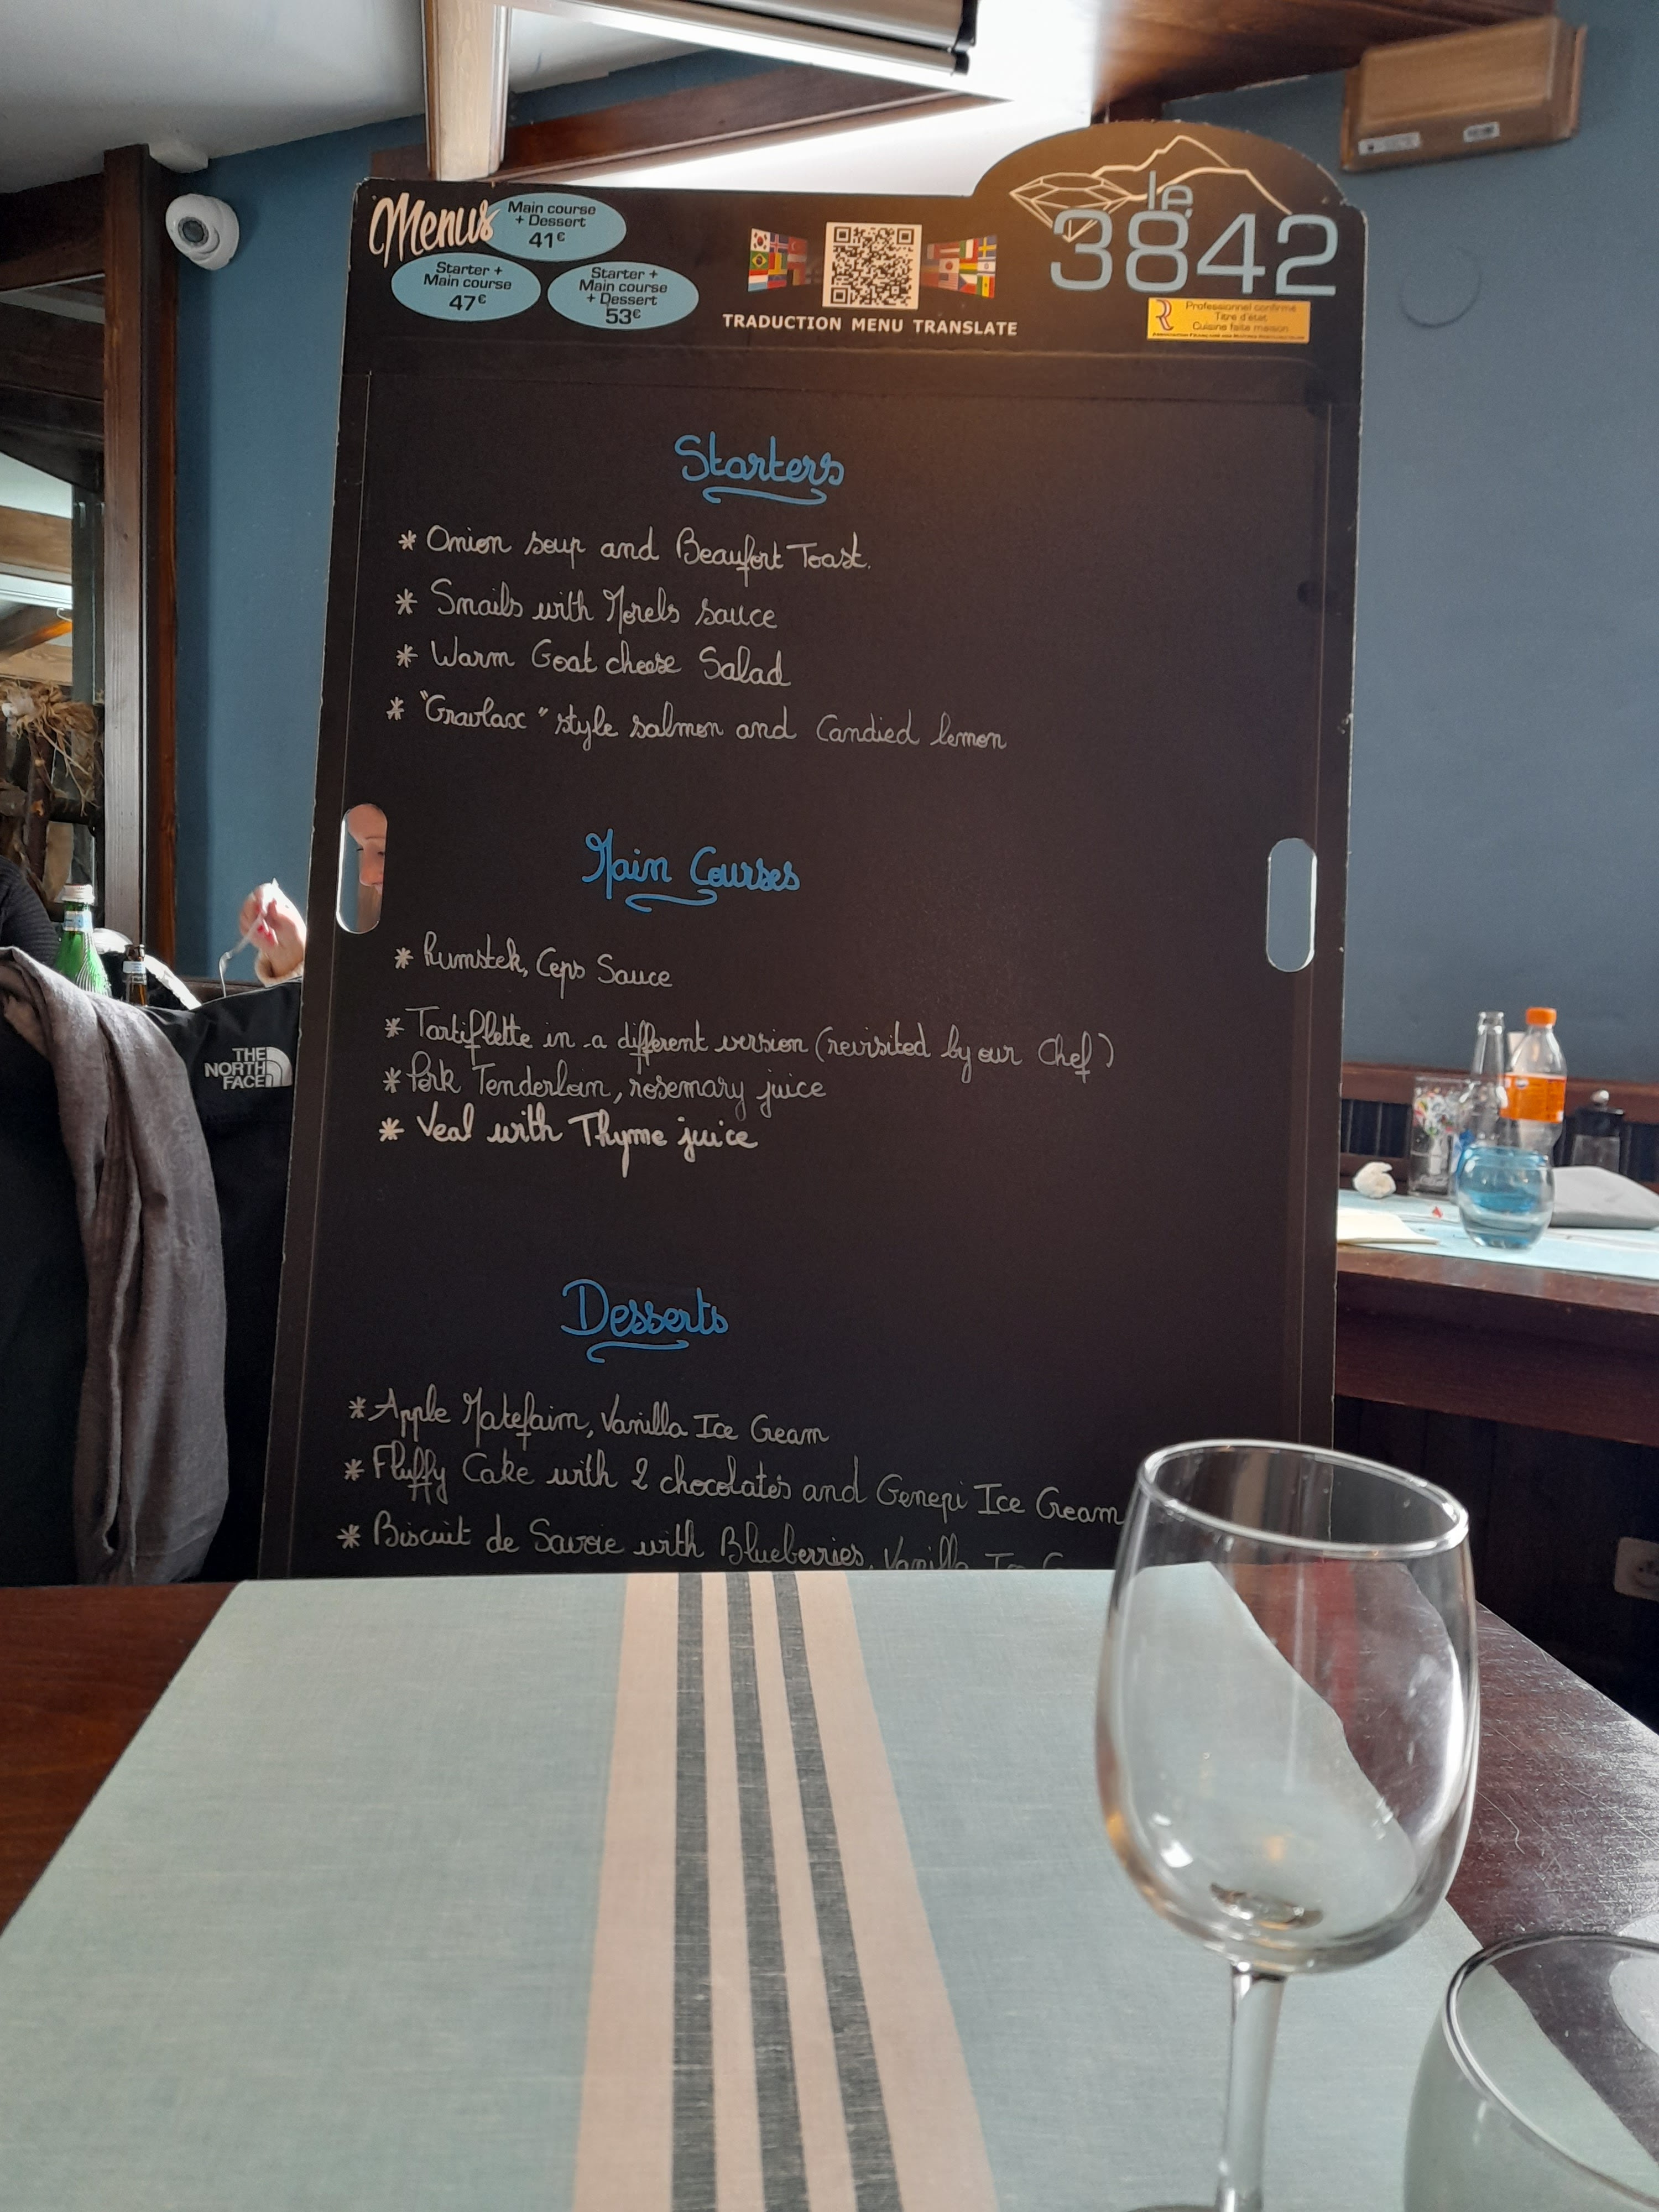 Menus
Main course
+ Dessert
41€
Starter +
Main course
47€
Starter +
Main course
+ Dessert
53€
TRADUCTION MENU TRANSLATE
le
3842
Professionnel confirmé
Titre d'état
Cuisine faite maison
Starters
* Onion soup and Beaufort Toast.
* Snails with Morels sauce
* Warm Goat cheese Salad
* "Gravlax" style salmon and Candied lemon
Main Courses
* Rumstek, Ceps Sauce
* Tartiflette in a different version (revisited by our Chef)
* Pork Tenderloin, rosemary juice
* Veal with Thyme juice
Desserts
* Apple Matefaim, Vanilla Ice Cream
* Fluffy Cake with 2 chocolates and Genepi Ice Cream
* Biscuit de Savoie with Blueberries, Vanilla Ice
THE
NORTH
FACE